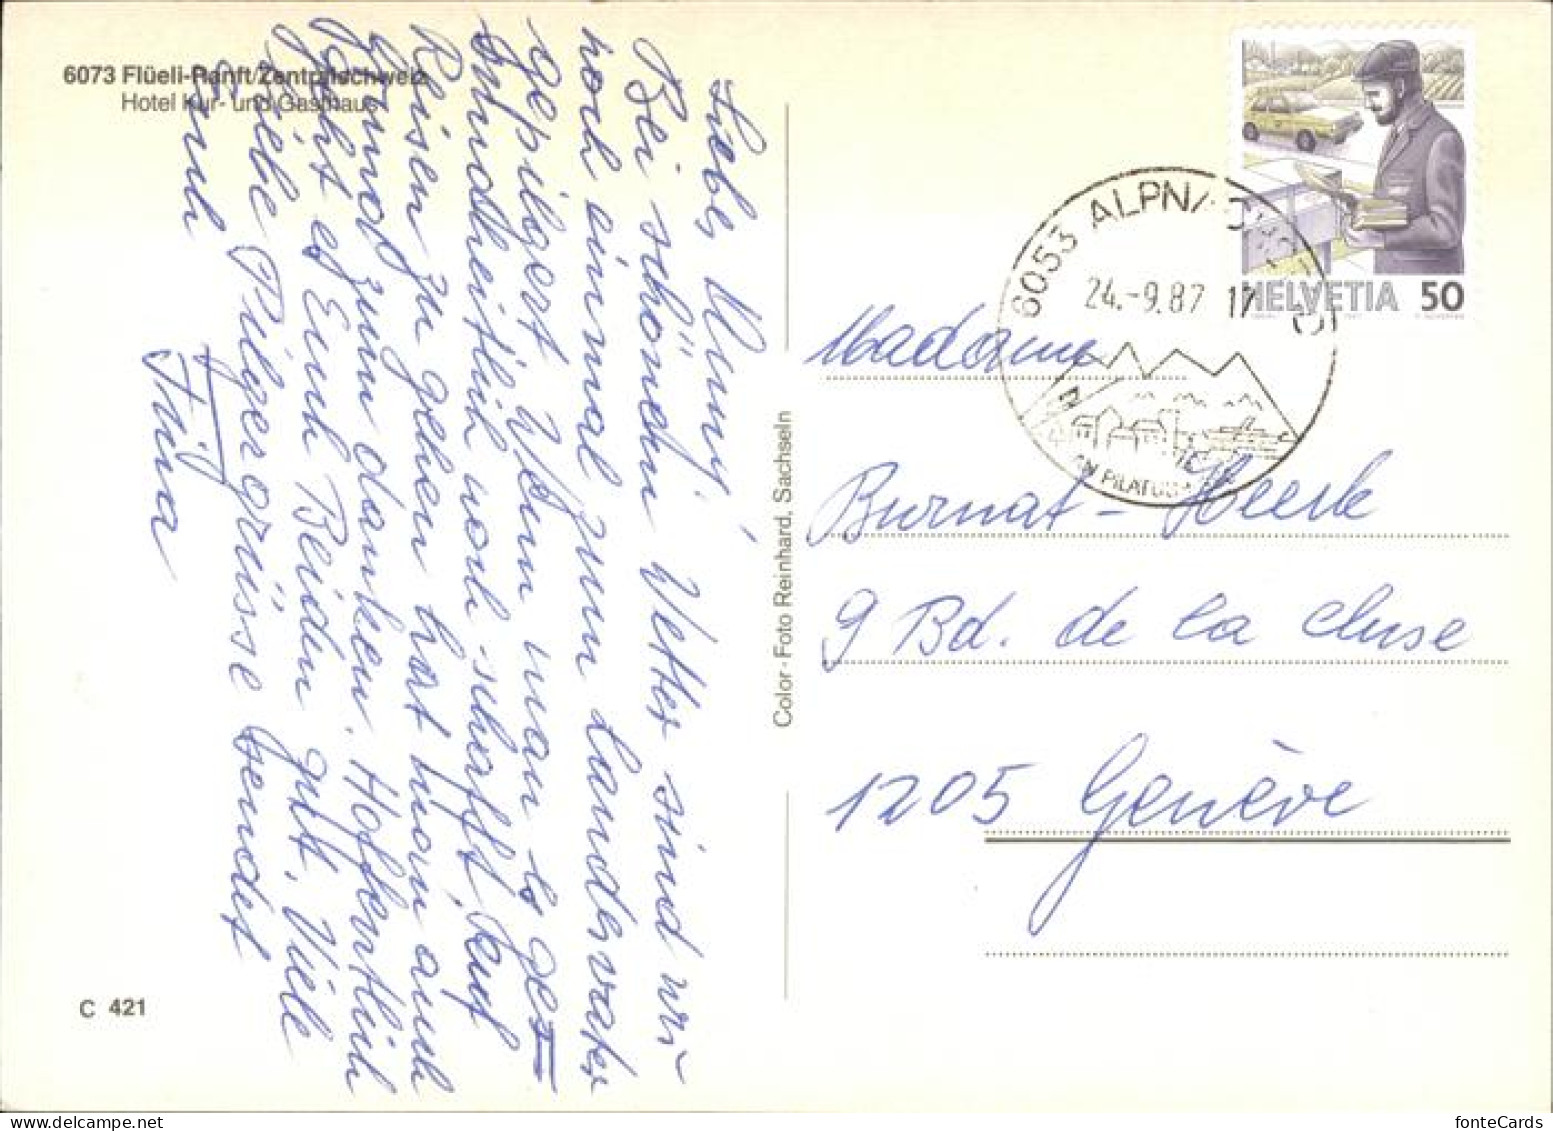 6073 Flüeli-Ranft/Zentralschweiz
Hotel Kur- und Gasthaus
Liebe Mumy!
Bei schönem Wetter sind wir
noch einmal zum Landesvater
gepilgert. Wenn man es ges-
undheitlich noch schafft, auf
Reisen zu gehen hat man auch
Grund zum danken. Hoffentlich
geht es Euch Beiden gut. Viele
liebe Pilgergrüsse sendet
Euch
Color-Foto Reinhard, Sachseln
C 421
HELVETIA 50
6053 ALPNACHSTAD
24.-9.87 17
AM PILATUS
Madame
Burnat-
9 Bd. de la Cluse
1205 Genève